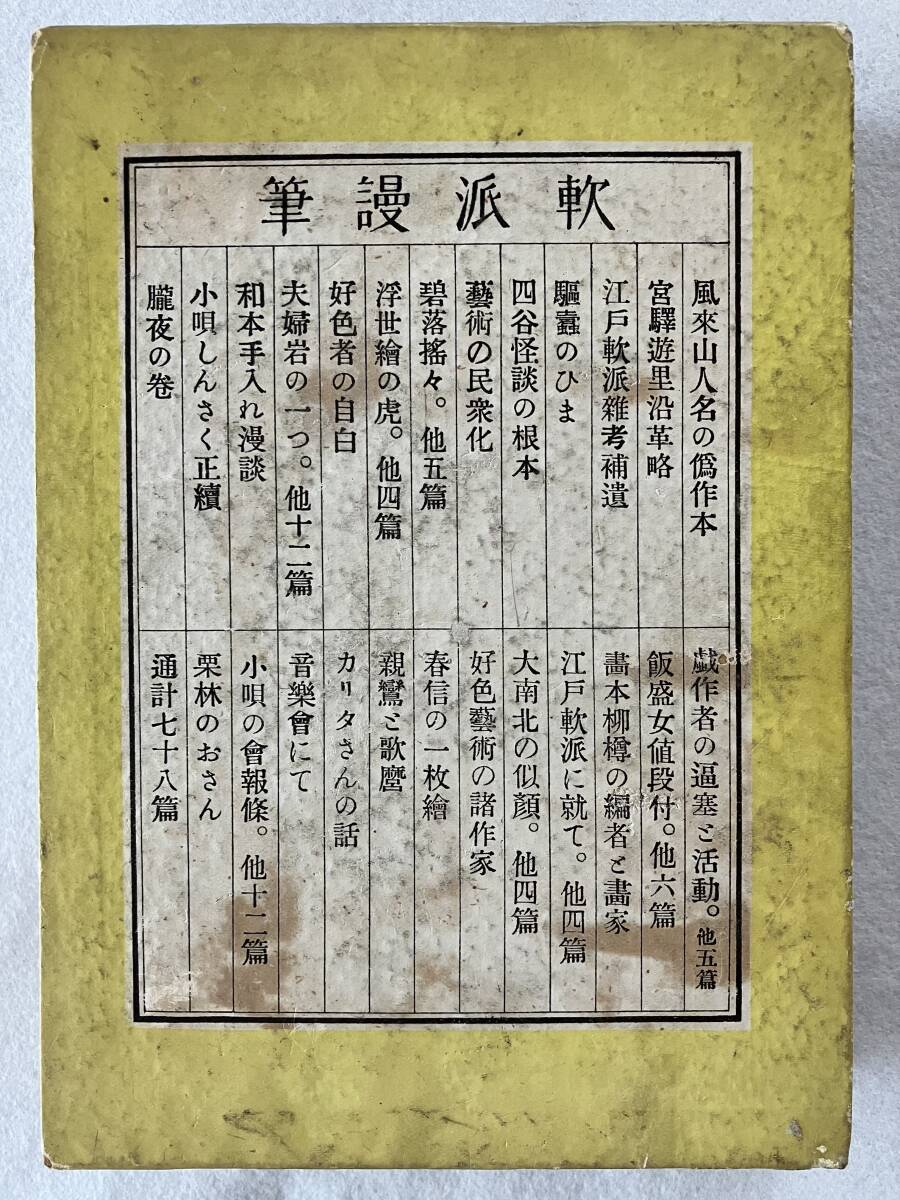 軟派謾筆
風來山人名の僞作本
戯作者の逼塞と活動。他五篇
宮驛遊里沿革略
飯盛女値段付。他六篇
江戸軟派雜考補遺
畵本柳樽の編者と畵家
驅蠧のひま
江戸軟派に就て。他四篇
四谷怪談の根本
大南北の似顏。他四篇
藝術の民衆化
好色藝術の諸作家
碧落搖々。他五篇
春信の一枚繪
浮世繪の虎。他四篇
親鸞と歌麿
好色者の自白
カリタさんの話
夫婦岩の一つ。他十二篇
音樂會にて
和本手入れ漫談
小唄の會報條。他十二篇
小唄しんさく正續
栗林のおさん
朧夜の卷
通計七十八篇